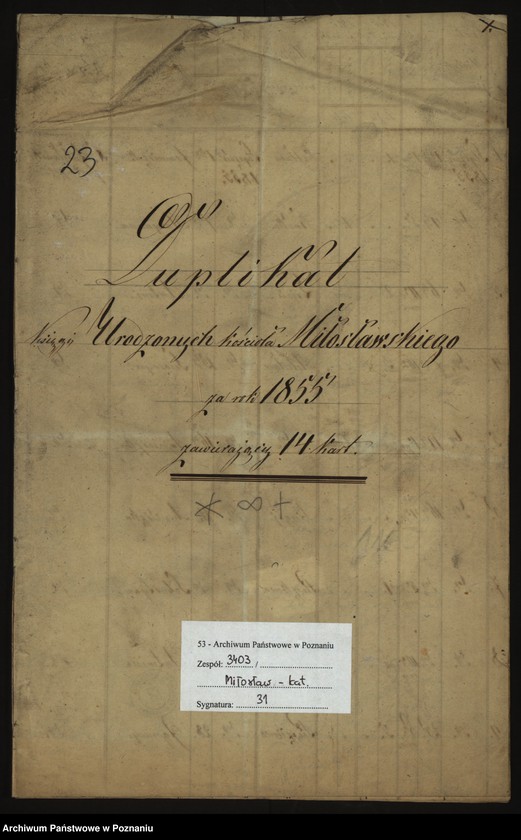 1.
23
Duplikat
księgi Urodzonych kościoła Miłosławskiego
za rok 1855
zawierający 14 kart.
* ∞ +
53 - Archiwum Państwowe w Poznaniu
Zespół: 3403 /
Miłosław - kat.
Sygnatura: 31
Archiwum Państwowe w Poznaniu